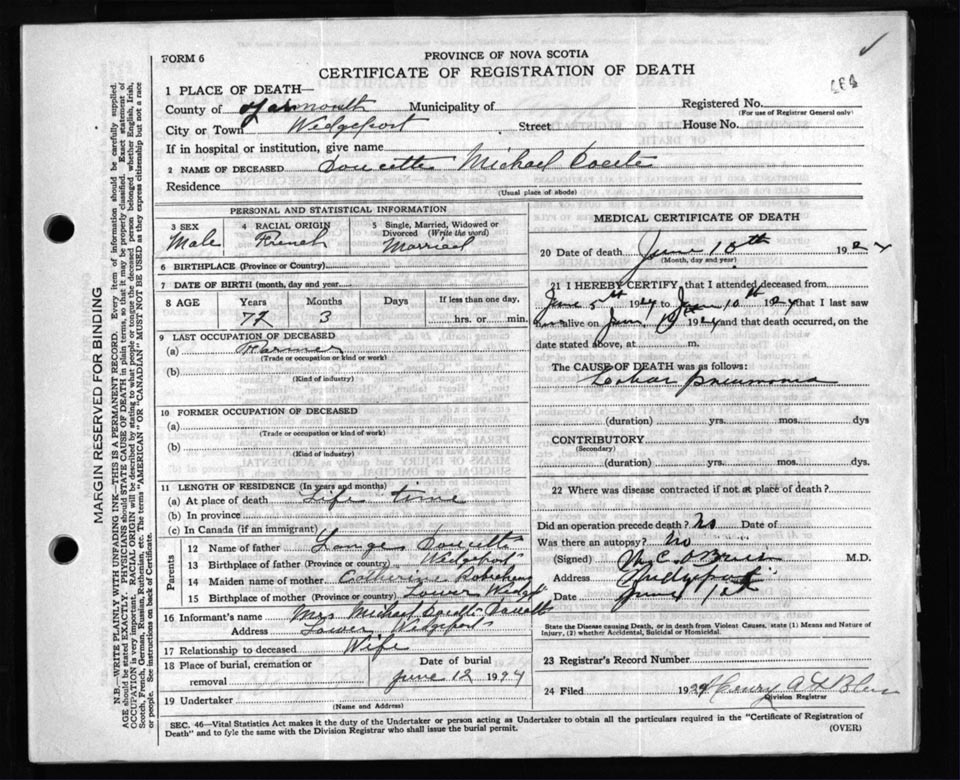 FORM 6
PROVINCE OF NOVA SCOTIA
CERTIFICATE OF REGISTRATION OF DEATH
MARGIN RESERVED FOR BINDING
N.B.—WRITE PLAINLY WITH UNFADING INK—THIS IS A PERMANENT RECORD. Every item of information should be carefully supplied.
AGE should be stated EXACTLY. PHYSICIANS should STATE CAUSE OF DEATH in plain terms, so that it may be properly classified. Exact statement of
OCCUPATION is very important. RACIAL ORIGIN will be described by stating to what people or tongue the deceased person belonged whether English, Irish,
Scotch, French, German, Russian, Ruthenian, etc. The terms "AMERICAN" OR "CANADIAN" MUST NOT BE USED as they express citizenship but not a race
or people. See instructions on back of Certificate.
1 PLACE OF DEATH—
County of Yarmouth Municipality of Registered No.
(For use of Registrar General only)
City or Town Wedgeport Street House No.
If in hospital or institution, give name
2 NAME OF DECEASED Doucette Michael
Residence
(Usual place of abode)
PERSONAL AND STATISTICAL INFORMATION
3 SEX 4 RACIAL ORIGIN 5 Single, Married, Widowed or
Divorced (Write the word)
Male French Married
6 BIRTHPLACE (Province or Country)
7 DATE OF BIRTH (month, day and year)
8 AGE Years Months Days If less than one day,
72 3 hrs. or min.
9 LAST OCCUPATION OF DECEASED
(a) Farmer
(Trade or occupation or kind or work)
(b)
(Kind of industry)
10 FORMER OCCUPATION OF DECEASED
(a)
(Trade or occupation or kind of work)
(b)
(Kind of industry)
11 LENGTH OF RESIDENCE (In years and months)
(a) At place of death Life time
(b) In province
(c) In Canada (if an immigrant)
Parents
12 Name of father Doucette
13 Birthplace of father (Province or country) Wedgeport
14 Maiden name of mother Catherine
15 Birthplace of mother (Province or country) Lower Wedgpt
16 Informant's name Mrs Michael Doucette
Address Lower Wedgeport
17 Relationship to deceased Wife
18 Place of burial, cremation or
removal
Date of burial
June 12 1924
19 Undertaker
(Name and Address)
MEDICAL CERTIFICATE OF DEATH
20 Date of death June 10th 1924
(Month, day and year)
21 I HEREBY CERTIFY, that I attended deceased from
June 5th 1924 to June 10th 1924 that I last saw
him alive on June 1924 and that death occurred, on the
date stated above, at m.
The CAUSE OF DEATH was as follows:
Lobar pneumonia
(duration) yrs. mos. dys
CONTRIBUTORY
(Secondary)
(duration) yrs. mos. dys.
22 Where was disease contracted if not at place of death?
Did an operation precede death? No Date of
Was there an autopsy? No
(Signed) O'Brien M.D.
Address Wedgeport
Date June
State the Disease causing Death, or in death from Violent Causes, state (1) Means and Nature of
Injury, (2) whether Accidental, Suicidal or Homicidal.
23 Registrar's Record Number
24 Filed 1924 Henry A
Division Registrar
SEC. 46—Vital Statistics Act makes it the duty of the Undertaker or person acting as Undertaker to obtain all the particulars required in the "Certificate of Registration of
Death" and to fyle the same with the Division Registrar who shall issue the burial permit.
(OVER)